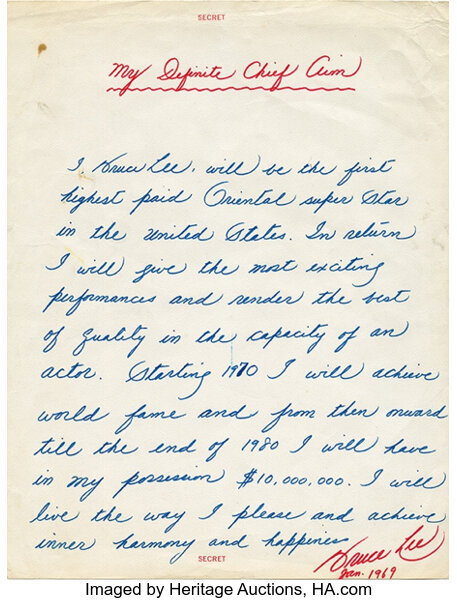 SECRET
My Definite Chief Aim
I, Bruce Lee, will be the first
highest paid Oriental super star
in the United States. In return
I will give the most exciting
performances and render the best
of quality in the capacity of an
actor. Starting 1970 I will achieve
world fame and from then onward
till the end of 1980 I will have
in my possession $10,000,000. I will
live the way I please and achieve
inner harmony and happiness
Bruce Lee
Jan. 1969
SECRET
Imaged by Heritage Auctions, HA.com